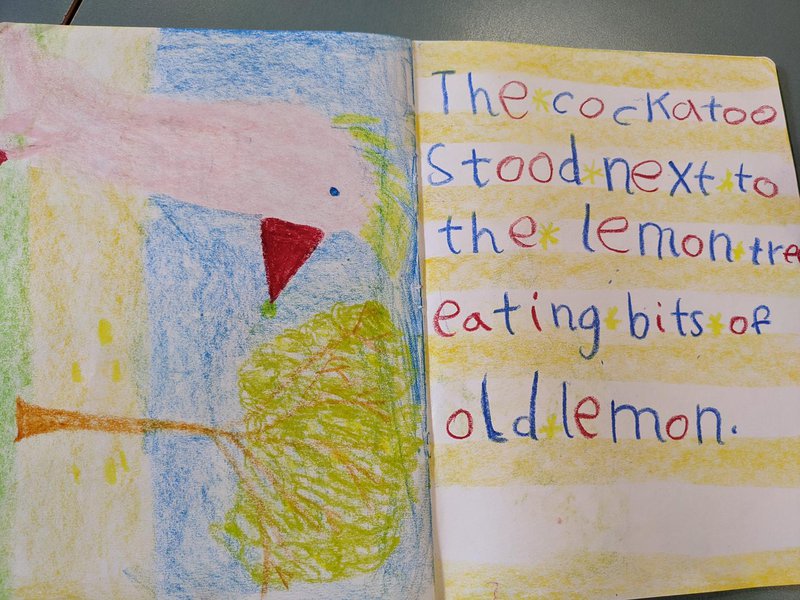 The cockatoo
Stood next to
the lemon tree
eating bits of
old lemon.